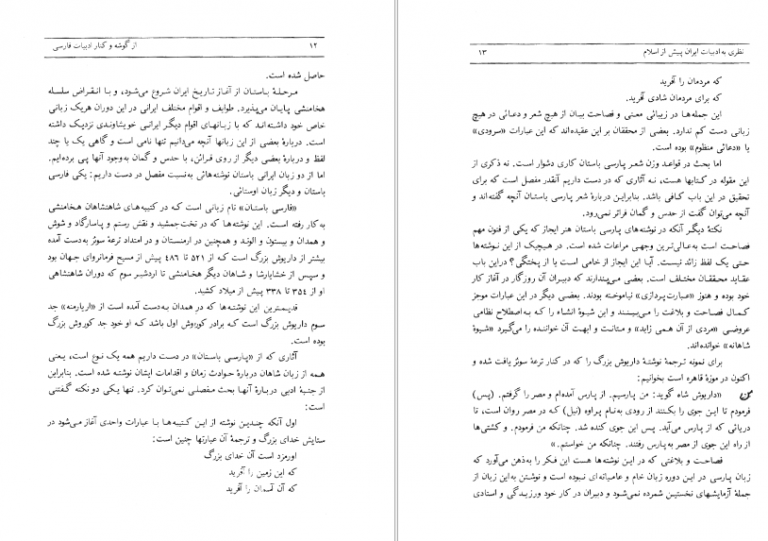 ۱۲ از گوشه و کنار ادبیات فارسی
حاصل شده است.
مرحلهٔ باستان از آغاز تاریخ ایران شروع می‌شود، و با انقراض سلسله
هخامنشی پایان می‌پذیرد. طوایف و اقوام مختلف ایرانی در این دوران هریک زبانی
خاص خود داشته‌اند که با زبانهای اقوام دیگر ایرانی خویشاوندی نزدیک داشته
است. دربارهٔ بعضی از این زبانها آنچه می‌دانیم تنها نامی است و گاهی یک یا چند
لفظ و دربارهٔ بعضی دیگر از روی قرائن، با حدس و گمان به‌وجود آنها پی برده‌ایم.
اما از دو زبان ایرانی باستان نوشته‌هائی به‌نسبت مفصل در دست داریم: یکی فارسی
باستان و دیگر زبان اوستائی.
«فارسی باستان» نام زبانی است که در کتیبه‌های شاهنشاهان هخامنشی
به کار رفته است. این نوشته‌ها که در تخت‌جمشید و نقش رستم و پاسارگاد و شوش
و همدان و بیستون و الوند و همچنین در ارمنستان و در امتداد ترعهٔ سوئز به‌دست آمده
بیشتر از داریوش بزرگ است که از ۵۲۱ تا ۴۸۶ پیش از مسیح فرمانروای جهان بود
و سپس از خشایارشا و شاهان دیگر هخامنشی تا اردشیر سوم که دوران شاهنشاهی
او از ۳۵۴ تا ۳۳۸ پیش از میلاد کشید.
قدیمترین این نوشته‌ها که در همدان به‌دست آمده است از «اریارمنه» جد
سوم داریوش بزرگ است که برادر کوروش اول باشد که او خود جد کوروش بزرگ
بوده است.
آثاری که از «پارسی باستان» در دست داریم همه یک نوع است، یعنی
همه از زبان شاهان دربارهٔ حوادث زمان و اقدامات ایشان نوشته شده است. بنابراین
از جنبهٔ ادبی دربارهٔ آنها بحث مفصلی نمی‌توان کرد. تنها یکی دو نکته گفتنی
است:
اول آنکه چندین نوشته از این کتیبه‌ها با عبارات واحدی آغاز می‌شود در
ستایش خدای بزرگ و ترجمهٔ آن عبارتها چنین است:
اورمزد است آن خدای بزرگ
که این زمین را آفرید
که آن آسمان را آفرید
نظری به ادبیات ایران پیش از اسلام ۱۳
که مردمان را آفرید
که برای مردمان شادی آفرید.
این جمله‌ها در زیبائی معنی و فصاحت بیان از هیچ شعر و دعائی در هیچ
زبانی دست کم ندارد. بعضی از محققان بر این عقیده‌اند که این عبارات «سرودی»
یا «دعائی منظوم» بوده است.
اما بحث در قواعد وزن شعر پارسی باستان کاری دشوار است. نه ذکری از
این مقوله در کتابها هست، نه آثاری که در دست داریم آنقدر مفصل است که برای
تحقیق در این باب کافی باشد. بنابراین دربارهٔ شعر پارسی باستان آنچه گفته‌اند و
آنچه می‌توان گفت از حدس و گمان فراتر نمی‌رود.
نکتهٔ دیگر آنکه در نوشته‌های پارسی باستان هنر ایجاز که یکی از فنون مهم
فصاحت است به‌عالی‌ترین وجهی مراعات شده است. در هیچیک از این نوشته‌ها
حتی یک لفظ زائد نیست. آیا این ایجاز از خامی است یا از پختگی؟ در این باب
عقاید محققان مختلف است. بعضی می‌پندارند که دبیران آن روزگار در آغاز کار
خود بوده و هنوز «عبارت‌پردازی» نیاموخته بودند. بعضی دیگر در این عبارات موجز
کمال فصاحت و بلاغت را می‌بینند و این شیوهٔ انشاء را که به‌اصطلاح نظامی
عروضی «مردی از آن همی زاید» و متانت و ابهت آن خواننده را می‌گیرد «شیوهٔ
شاهانه» خوانده‌اند.
برای نمونه ترجمهٔ نوشتهٔ داریوش بزرگ را که در کنار ترعهٔ سوئز یافت شده و
اکنون در موزهٔ قاهره است بخوانیم:
«داریوش شاه گوید: من پارسیم. از پارس آمده‌ام و مصر را گرفتم. (پس)
فرمودم تا این جوی را بکنند از رودی به‌نام پراوه (نیل) که در مصر روان است، تا
دریائی که از پارس می‌آید. پس این جوی کنده شد. چنانکه من فرمودم. و کشتی‌ها
از راه این جوی از مصر به‌پارس رفتند. چنانکه من خواستم.»
فصاحت و بلاغتی که در این نوشته‌ها هست این فکر را به‌ذهن می‌آورد که
زبان پارسی در این دوره زبان خام و عامیانه‌ای نبوده است و نوشتن به‌این زبان از
جملهٔ آزمایشهای نخستین شمرده نمی‌شود و دبیران در کار خود ورزیدگی و استادی